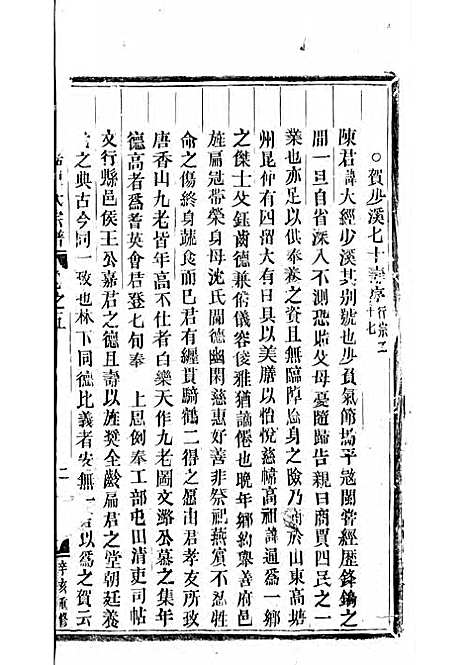 ○賀少溪七十壽序行宗二十七
陳君諱大經少溪其別號也少負氣節揚平寇關嘗經歷鋒鏑之
間一旦自省深入不測恐貽父母憂隨歸告親日商賈四民之一
業也亦足以供奉養之資且無臨陣危身之險乃商於山東高塘
州昆仲有四擂大有日具以美膳以怡悅慈幃高祖諱通爲一鄉
之傑士父鈺齒德兼備儀容俊雅猶謙倦也晚年鄉約舉善府邑
旌扁冠帶榮身母沈氏閫德幽閑慈惠好善非祭祀燕賓不忍牲
命之傷終身蔬食而已君有纏貫騎鶴二得之願出君孝友所致
唐香山九老皆年高不仕者白樂天作九老圖文潞公慕之集年
德高者爲耆英會君登七旬奉　上恩劍奉工部屯田清吏司帖
文行縣邑侯王公嘉君之德且壽以旌獎全齡扁君之堂朝廷養
之典古今同一致也林下同德比義者安無一言以爲之賀云
大宗譜　之五　二　辛亥重修